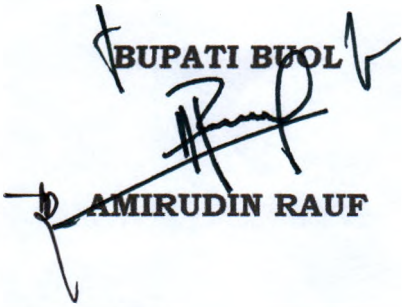 BUPATI BUOL
AMIRUDIN RAUF